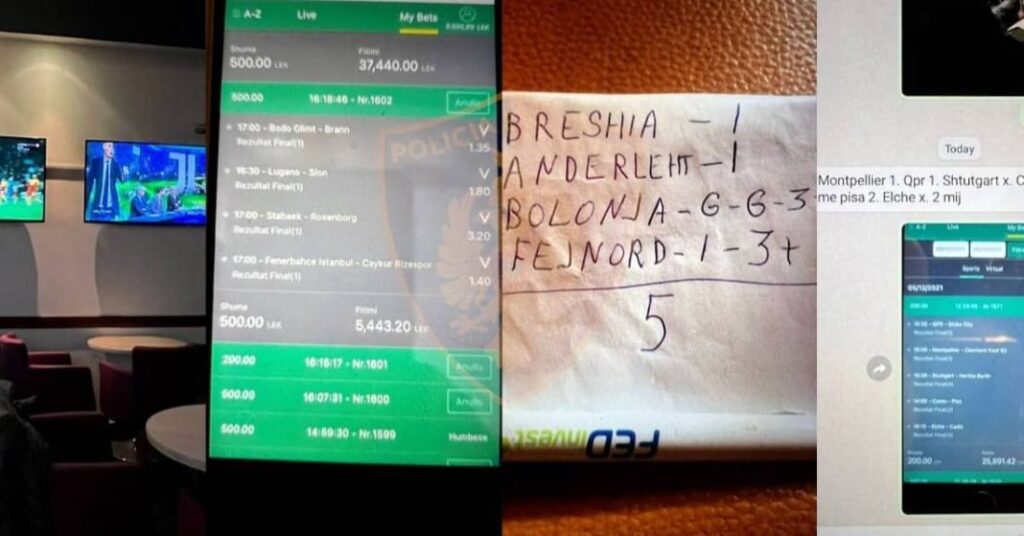 A-Z Live My Bets
Shuma Fitimi
500.00 LEK 37,440.00 LEK
500.00 16:16:46 - Nr.1602 Anullo
17:00 - Bodo Glimt - Brann V
Rezultat Final(1) 1.35
16:30 - Lugano - Sion V
Rezultat Final(1) 1.80
17:00 - Stabaek - Rosenborg V
Rezultat Final(1) 3.20
17:00 - Fenerbahce Istanbul - Caykur Rizespor V
Rezultat Final(1) 1.40
Shuma Fitimi
500.00 LEK 5,443.20 LEK
200.00 16:15:17 - Nr.1601 Anullo
500.00 16:07:31 - Nr.1600 Anullo
500.00 14:59:30 - Nr.1599 Humbese
POLICIA
BRESHIA - 1
ANDERLEHT - 1
BOLONJA - G - G - 3
FEJNORD - 1 - 3+
5
FED invest
Today
Montpellier 1. Qpr 1. Shtutgart x. C
me pisa 2. Elche x. 2 mij
A-Z Live My Be
Sports Virtual
05/12/2021
QPR - Stoke City
Montpellier - Clermont Foot 63
Stuttgart - Hertha Berlin
Como - Pisa
Elche - Cadiz
200.00 25,891.42